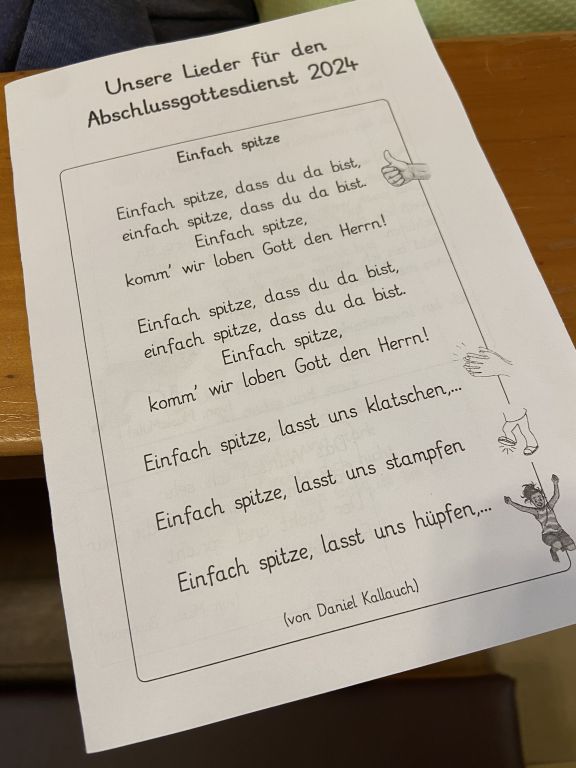 Unsere Lieder für den
Abschlussgottesdienst 2024
Einfach spitze
Einfach spitze, dass du da bist,
einfach spitze, dass du da bist.
Einfach spitze,
komm' wir loben Gott den Herrn!
Einfach spitze, dass du da bist,
einfach spitze, dass du da bist.
Einfach spitze,
komm' wir loben Gott den Herrn!
Einfach spitze, lasst uns klatschen,...
Einfach spitze, lasst uns stampfen
Einfach spitze, lasst uns hüpfen,...
(von Daniel Kallauch)